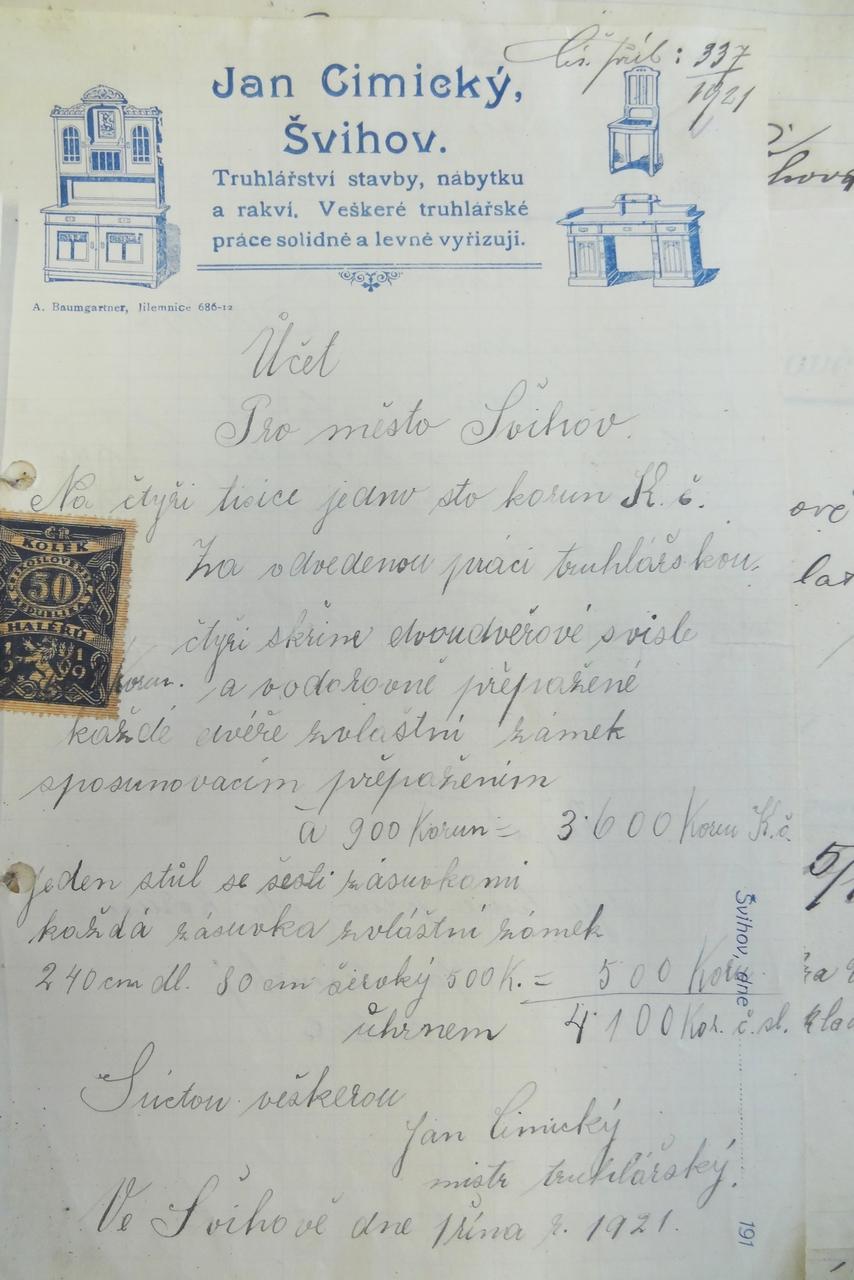 Čís. příl: 337
1921
Jan Cimický,
Švihov.
Truhlářství stavby, nábytku
a rakví. Veškeré truhlářské
práce solidně a levně vyřizuji.
A. Baumgartner, Jilemnice 686-12
Účet
Pro město Švihov.
Na čtyři tisíce jedno sto korun K. č.
Za odvedenou práci truhlářskou.
čtyři skříne dvoudvéřové svisle
a vodorovně přepažené
každé dvéře zvláštní zámek
sposunovacím přepažením
á 900 Korun = 3·600 Korun K.č.
jeden stůl se šesti zásuvkami
každá zásuvka zvláštní zámek
240 cm dl. 80 cm široký 500 K. = 500 Kor.
úhrnem 4·100 Kor. č. sl.
Súctou veškerou
Jan Cimický
mistr truhlářský.
Ve Švihově dne 1 října r. 1921.
Švihov, dne 191
ČR
KOLEK
ČESKOSLOVENSKÁ
50
REPUBLIKA
HALÉŘŮ
1919
korun.
ové
5/